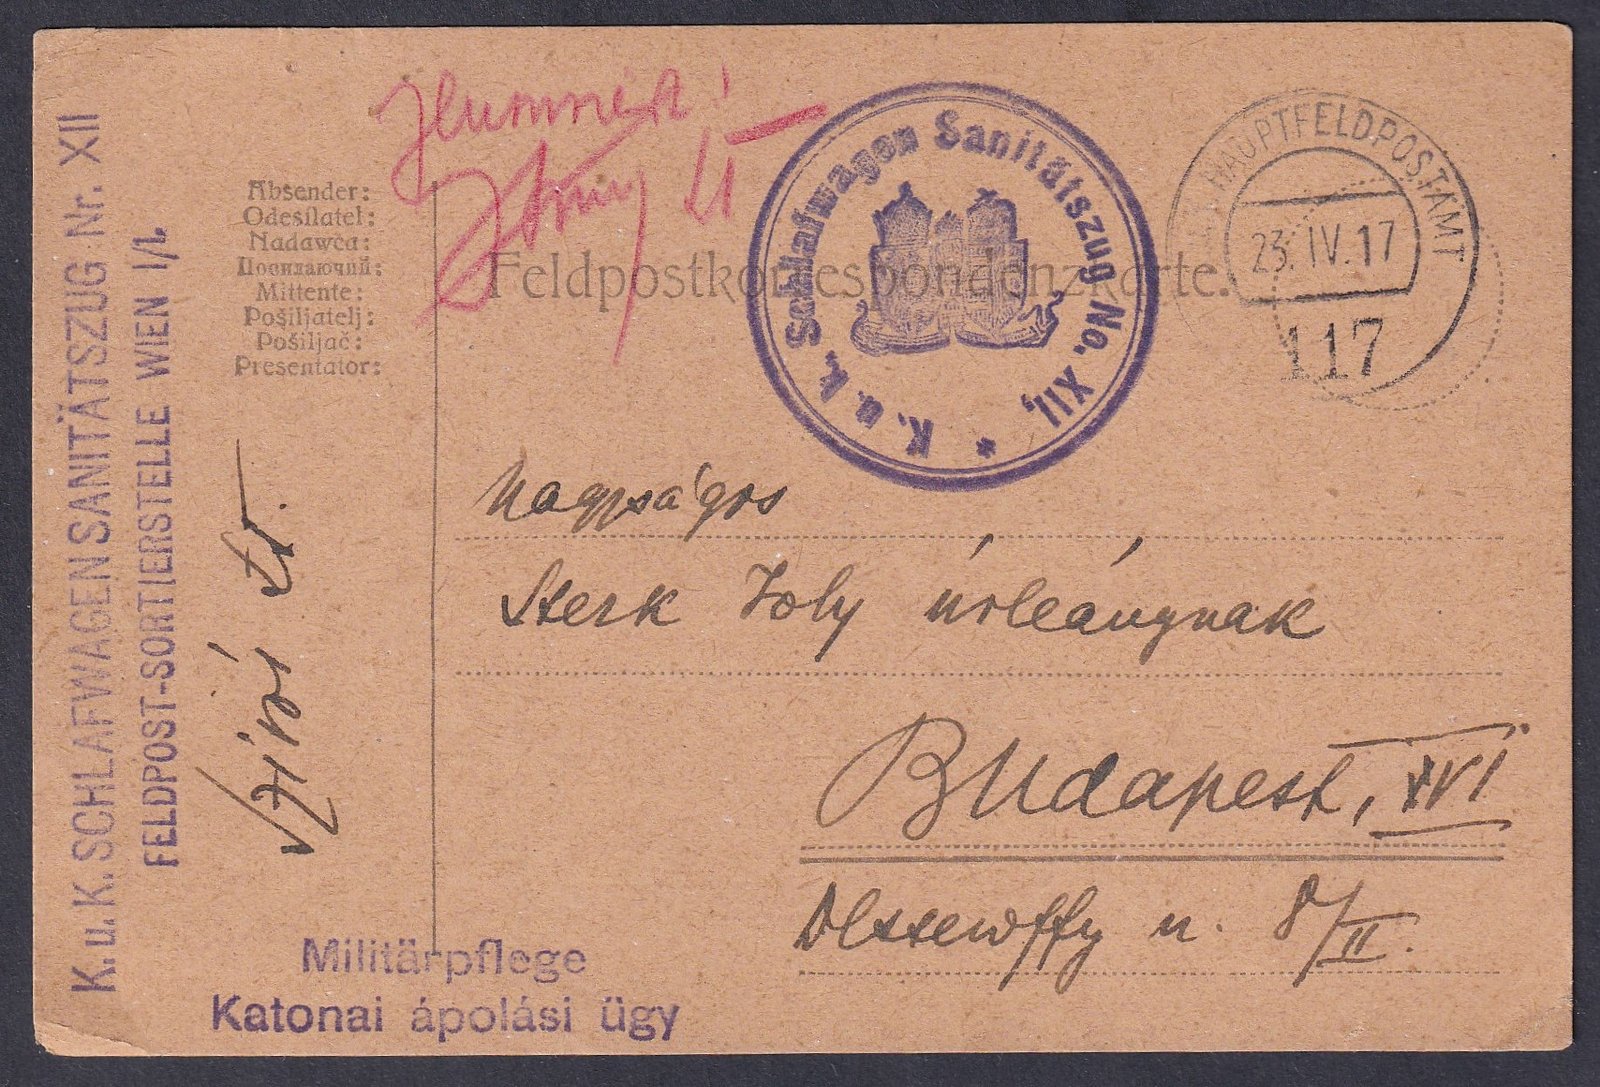 K.u.K. SCHLAFWAGENSANITÄTSZUG Nr. XII
FELDPOST-SORTIERSTELLE WIEN I/1.
Absender:
Odesílatel:
Nadawca:
Посилаючий:
Mittente:
Pošiljatelj:
Pošiljač:
Presentator:
Feldpostkorrespondenzkarte.
K. u. k. Schlafwagen Sanitätszug No. XII, *
HAUPTFELDPOSTAMT
23. IV. 17
117
Nagyságos
Sterk Joly úrleánynak
Budapest, XVI
u. 8/II.
Militärpflege
Katonai ápolási ügy